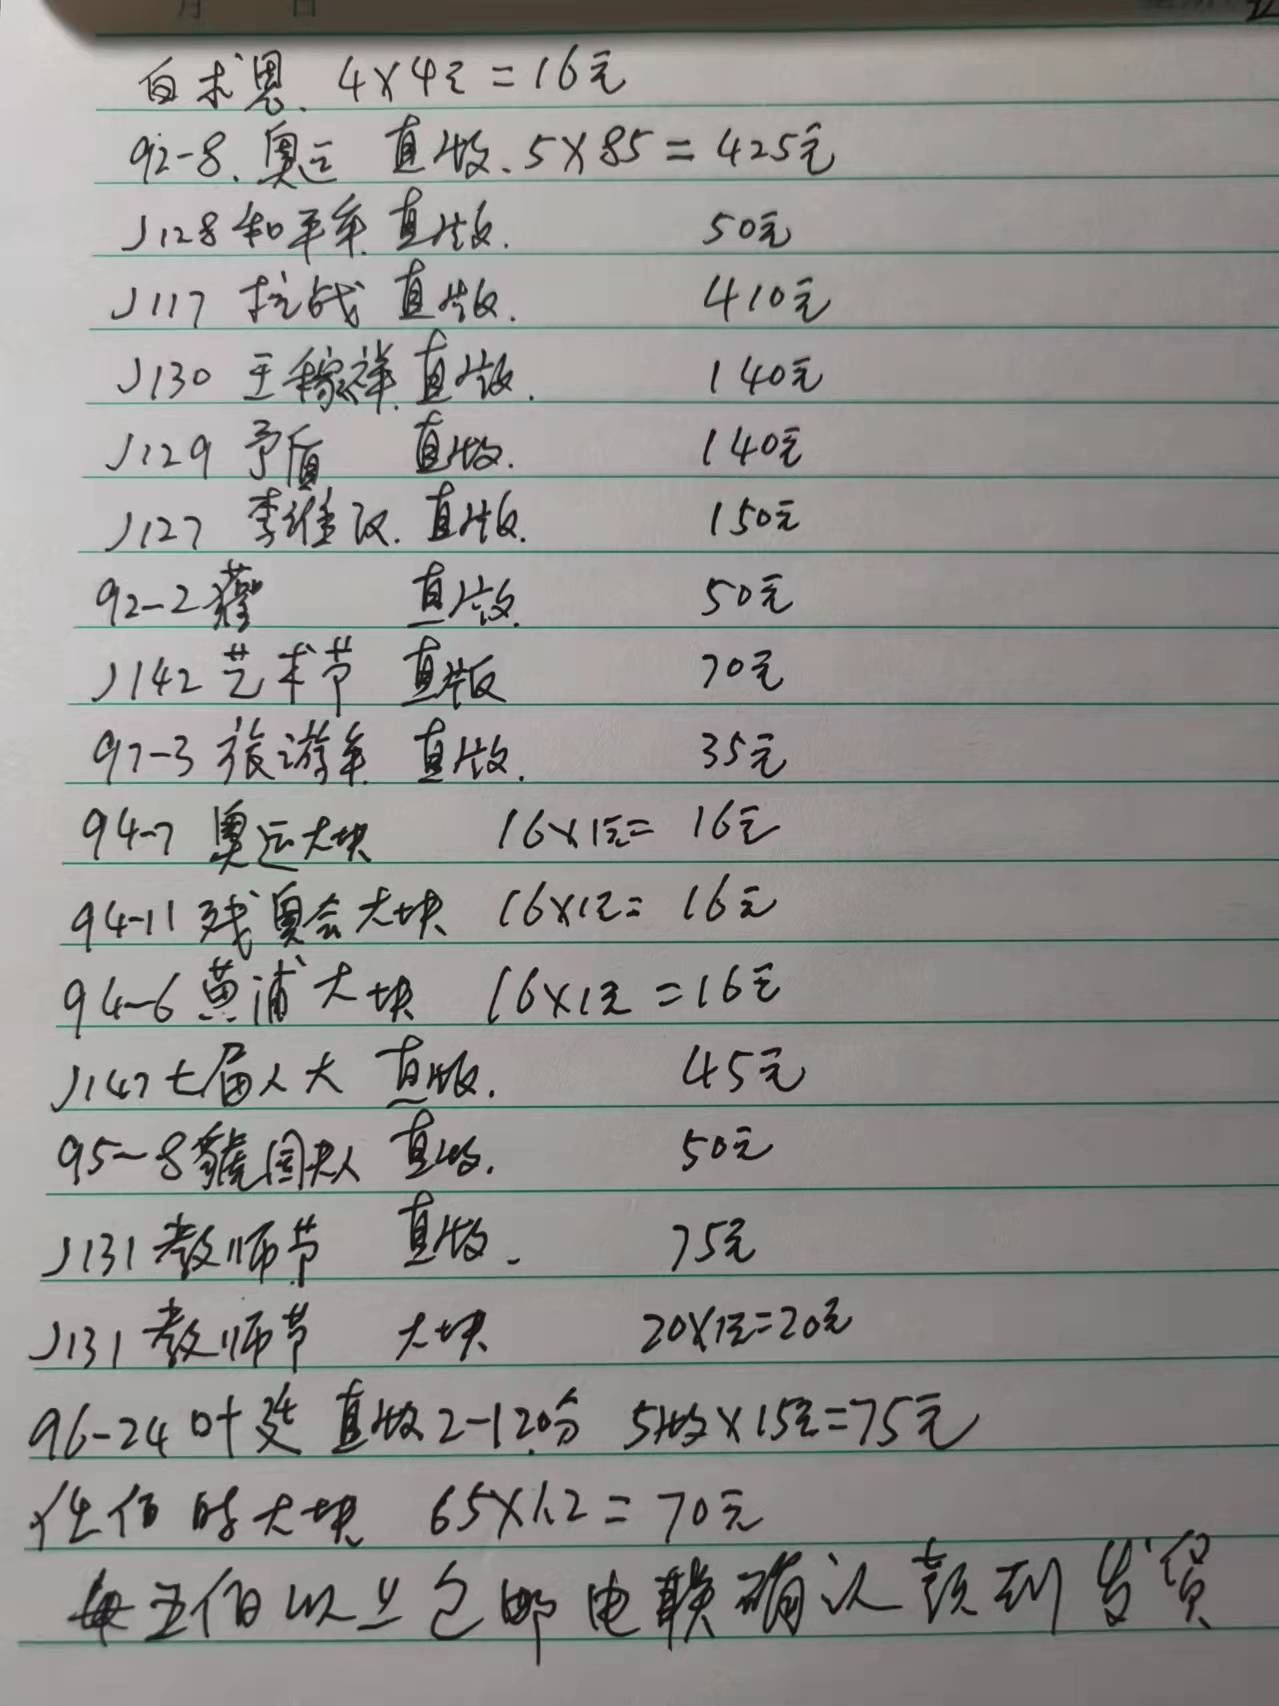 月 日
白求恩. 4×4元=16元
92-8. 奥运 直版. 5×85=425元
J128和平年 直版. 50元
J117 抗战 直版. 410元
J130 王稼祥 直版. 140元
J129 矛盾 直版. 140元
J127 李维汉. 直版. 150元
92-2 鹳 直版. 50元
J142 艺术节 直版 70元
97-3 旅游年 直版. 35元
94-7 奥运大块 16×1元= 16元
94-11 残奥会大块 16×1元= 16元
94-6 黄浦大块 16×1元=16元
J147七届人大 直版. 45元
95-8 国夫人 直版. 50元
J131 教师节 直版. 75元
J131 教师节 大块 20×1元=20元
96-24 叶挺 直版2-120分 5版×15元=75元
任佰时大块 65×1.2=70元
每五佰以上包邮电联确认款到发货